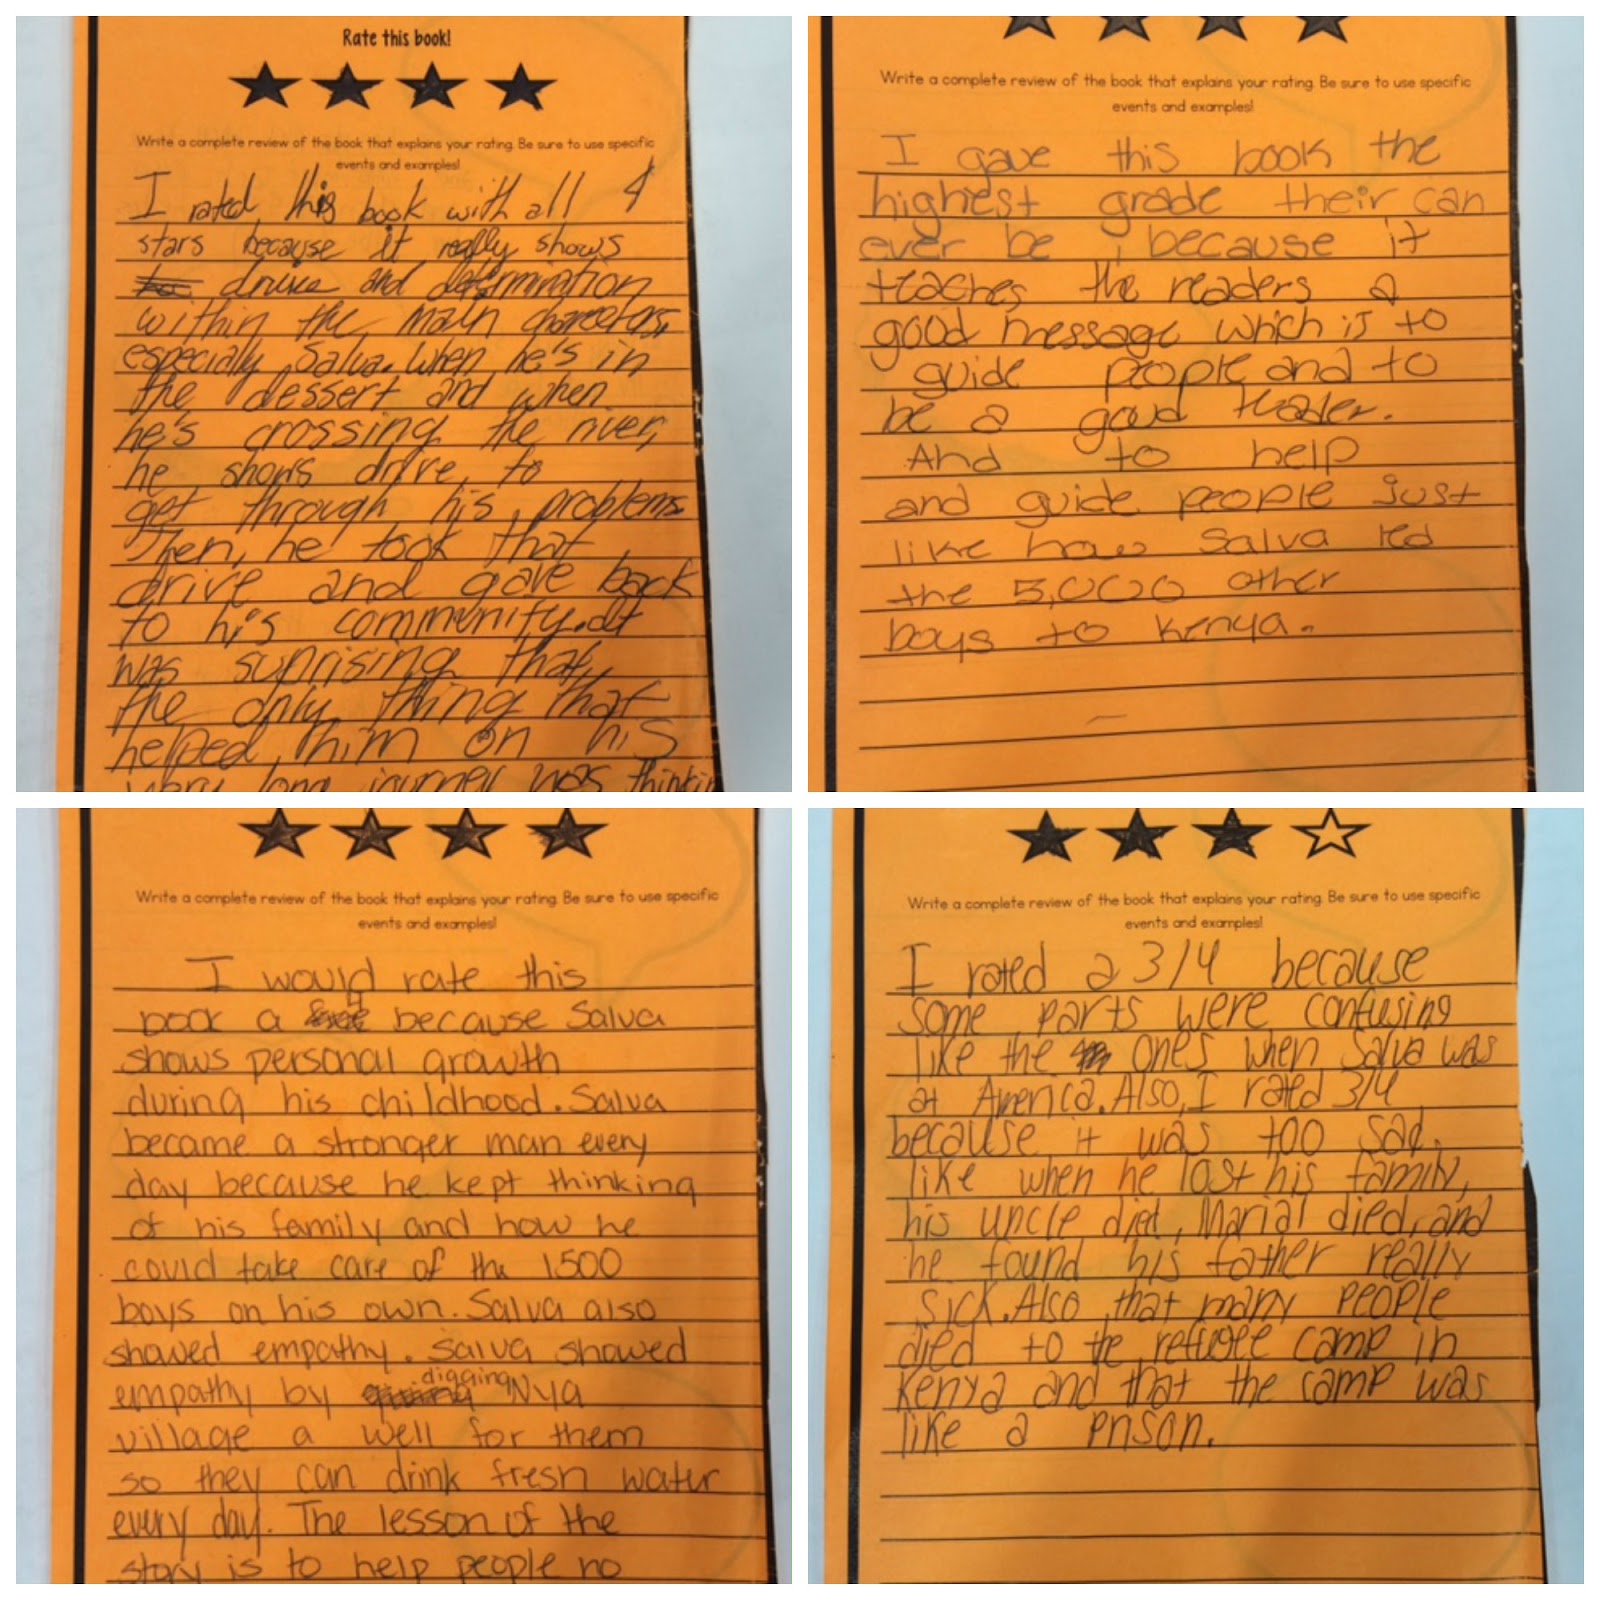 Rate this book!
Write a complete review of the book that explains your rating. Be sure to use specific
events and examples!
I rated this book with all 4
stars because it really shows
drive and determination
within the main charecters,
especially Salva. When he's in
the dessert and when
he's crossing the river,
he shows drive, to
get through his problems.
Then, he took that
drive and gave back
to his community. It
was suprising that,
the only thing that
helped him on his
very long journey was thinkin
Write a complete review of the book that explains your rating. Be sure to use specific
events and examples!
I gave this book the
highest grade their can
ever be, because it
teaches the readers a
good message which is to
guide people and to
be a good leader.
And to help
and guide people just
like how Salva led
the 5,000 other
boys to Kenya.
Write a complete review of the book that explains your rating. Be sure to use specific
events and examples!
I would rate this
book a 4 because Salva
shows personal growth
during his childhood. Salva
became a stronger man every
day because he kept thinking
of his family and how he
could take care of the 1500
boys on his own. Salva also
showed empathy. Salva showed
empathy by digging Nya
village a well for them
so they can drink fresh water
every day. The lesson of the
story is to help people no
Write a complete review of the book that explains your rating. Be sure to use specific
events and examples!
I rated a 3/4 because
some parts were confusing
like the ones when Salva was
at America. Also, I rated 3/4
because it was too sad.
like when he lost his family,
his uncle died, Marial died, and
he found his father really
sick. Also that many people
died to the refugee camp in
Kenya and that the camp was
like a prison.